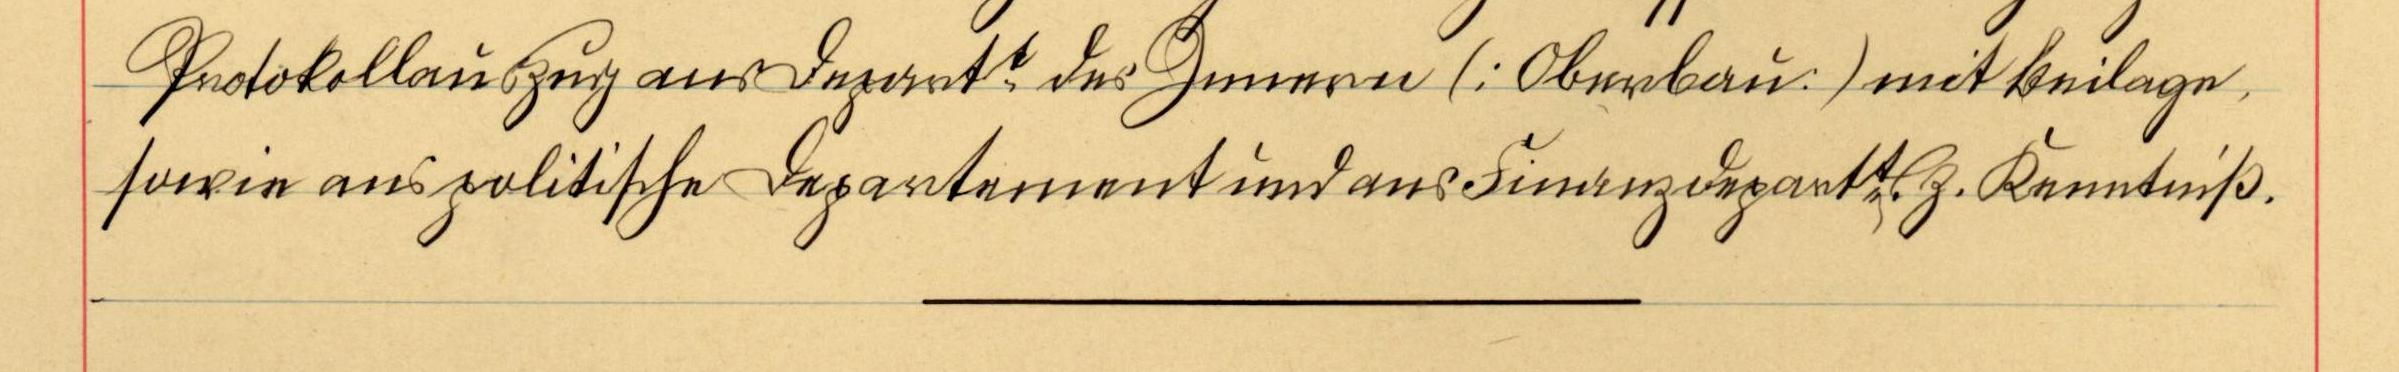 Protokollauszug ans Depart.t des Innern (: Oberbau :) mit Beilage,
sowie ans politische Departement und ans Finanzdepart.t z. Kenntniß.